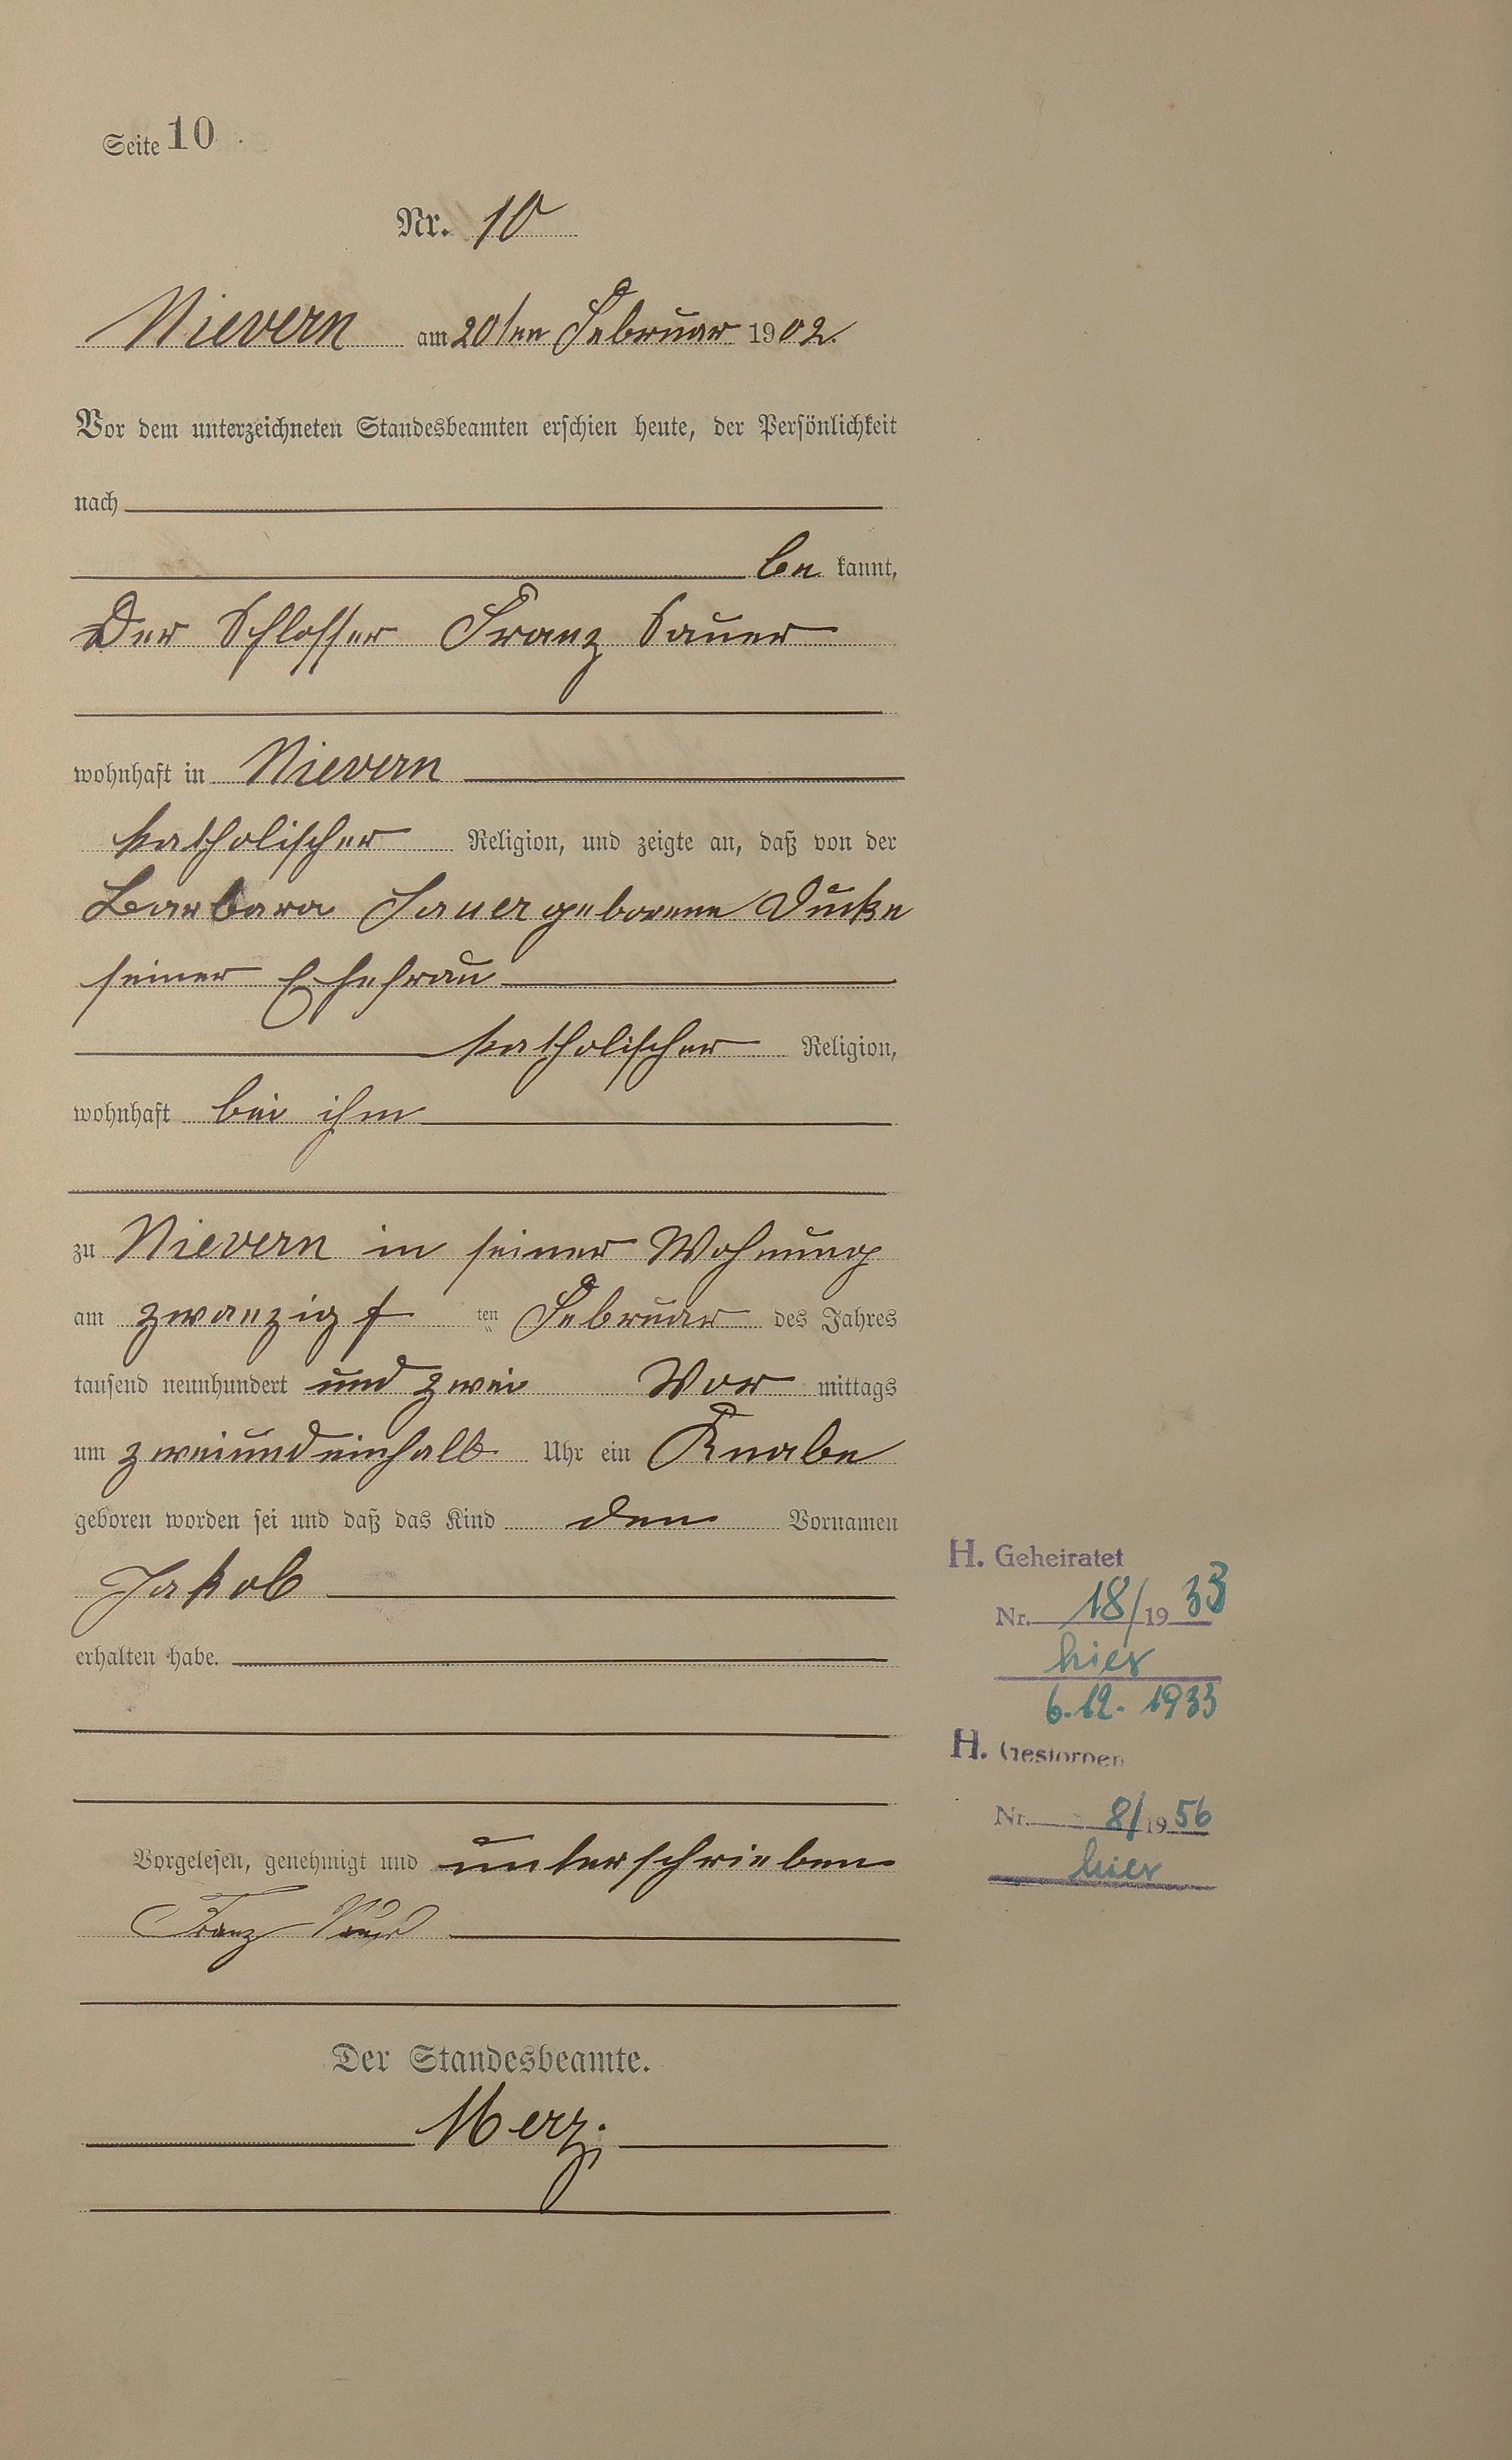 Seite 10
Nr. 10
Nievern am 20ten Februar 1902.
Vor dem unterzeichneten Standesbeamten erschien heute, der Persönlichkeit
nach
be kannt,
Der Schlosser Franz Sauer
wohnhaft in Nievern
katholischer Religion, und zeigte an, daß von der
Barbara Sauer geborene
seiner Ehefrau
katholischer Religion,
wohnhaft bei ihm
zu Nievern in seiner Wohnung
am zwanzigsten Februar des Jahres
tausend neunhundert und zwei Vor mittags
um zweiundeinhalb Uhr ein Knabe
geboren worden sei und daß das Kind den Vornamen
Jakob
erhalten habe.
Vorgelesen, genehmigt und unterschrieben
Franz Sauer
Der Standesbeamte.
Merz.
H. Geheiratet
Nr. 18/1933
hier
6.12.1933
H. Gestorben
Nr. 8/1956
hier